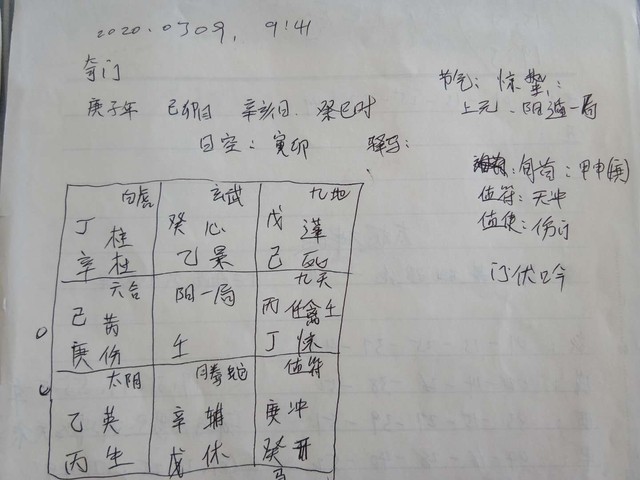 2020.0309, 9:41
奇门
庚子年 己卯月 辛亥日. 癸巳时
日空: 寅卯 驿马:
节气: 惊蛰,:
上元. 阳遁一局
旬首: 甲申(庚)
值符: 天冲
值使: 伤门
门伏吟
白虎 玄武 九地
丁 柱 癸 心 戊 蓬
辛 杜 乙 景 己 死
六合 阳一局 九天
己 芮 丙 任禽壬
庚 伤 壬 丁 惊
太阴 腾蛇 值符
乙 英 辛 辅 庚 冲
丙 生 戊 休 癸 开
马